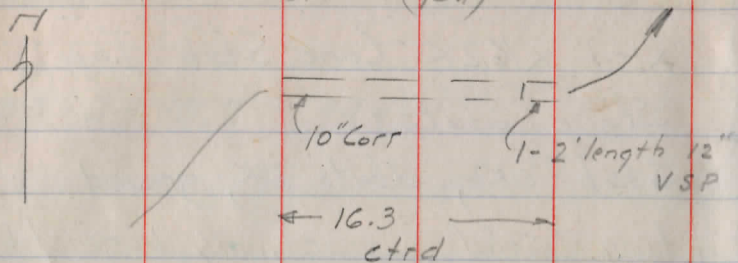 10" Corr
1- 2' length 12"
VSP
16.3
ctrd